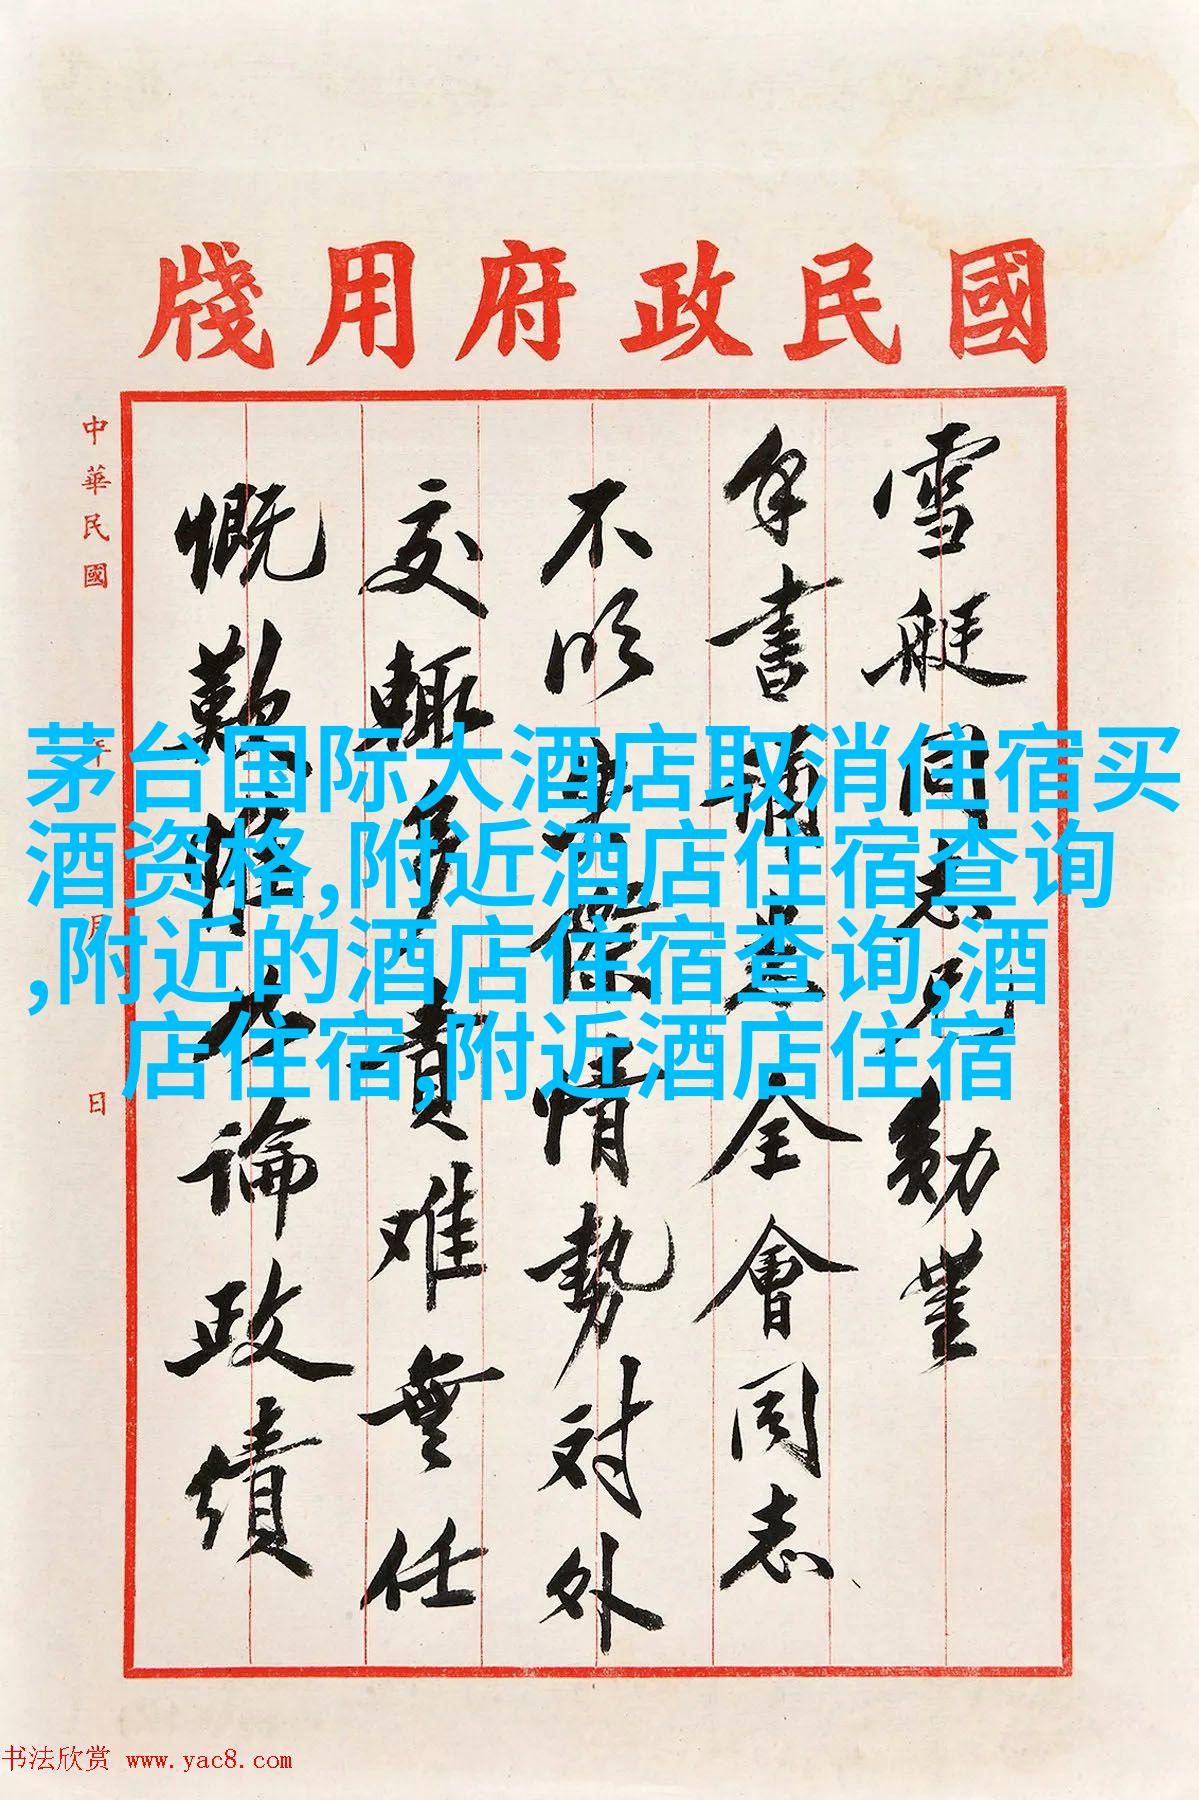 國民政府用牋
雪艇同志兄勛
手書誦悉全會同志
不明際情勢对外
交輒多責难無任
慨歎惟公論政績
中華民國 年 月 日
茅台国际大酒店取消住宿买
酒资格,附近酒店住宿查询
,附近的酒店住宿查询,酒
店住宿,附近酒店住宿
书法欣赏 www.yac8.com